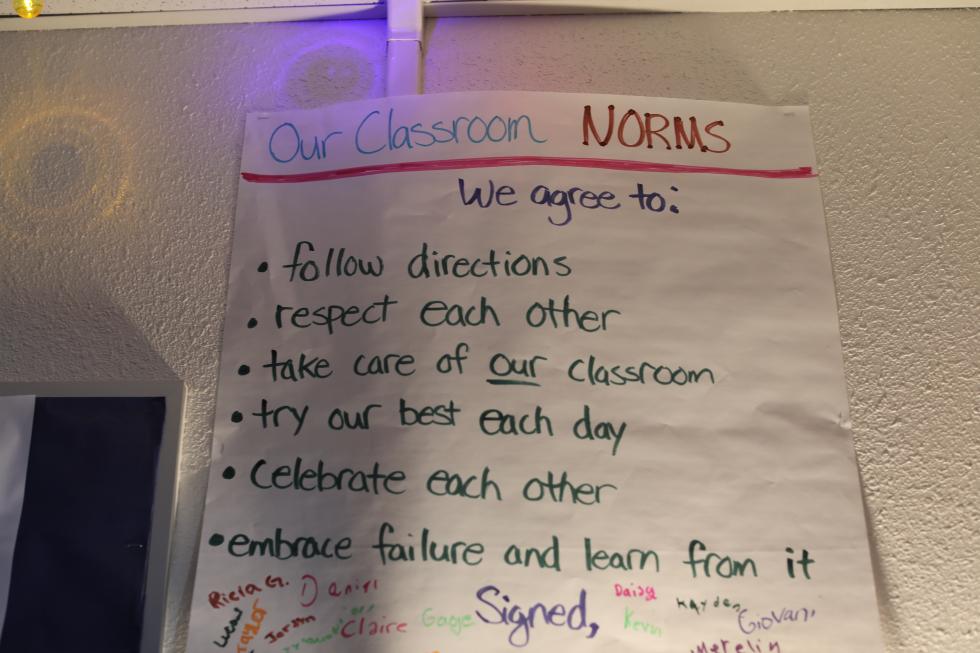 Our Classroom NORMS
We agree to:
• follow directions
• respect each other
• take care of our classroom
• try our best each day
• Celebrate each other
• embrace failure and learn from it
Riela G. Daniel Daisy Kayden
Taylor Claire Gage Signed, Kevin Giovani
Merelin